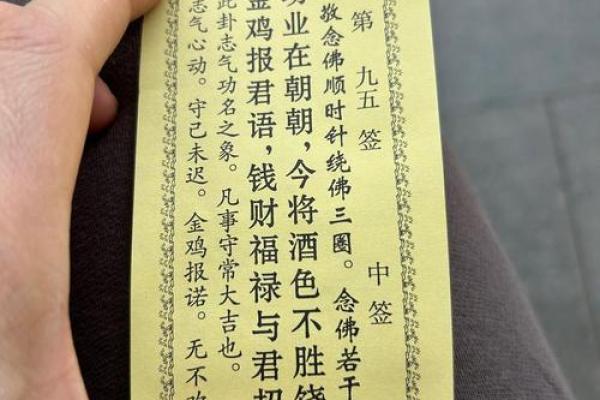 第九五签 中签
敬念佛顺时针绕佛三圈。念佛若干
功业在朝朝，今将酒色不胜饶
金鸡报君语，钱财福禄与君招
此卦志气功名之象。凡事守常大吉也。
志气心动。守己未迟。金鸡报诺。无不